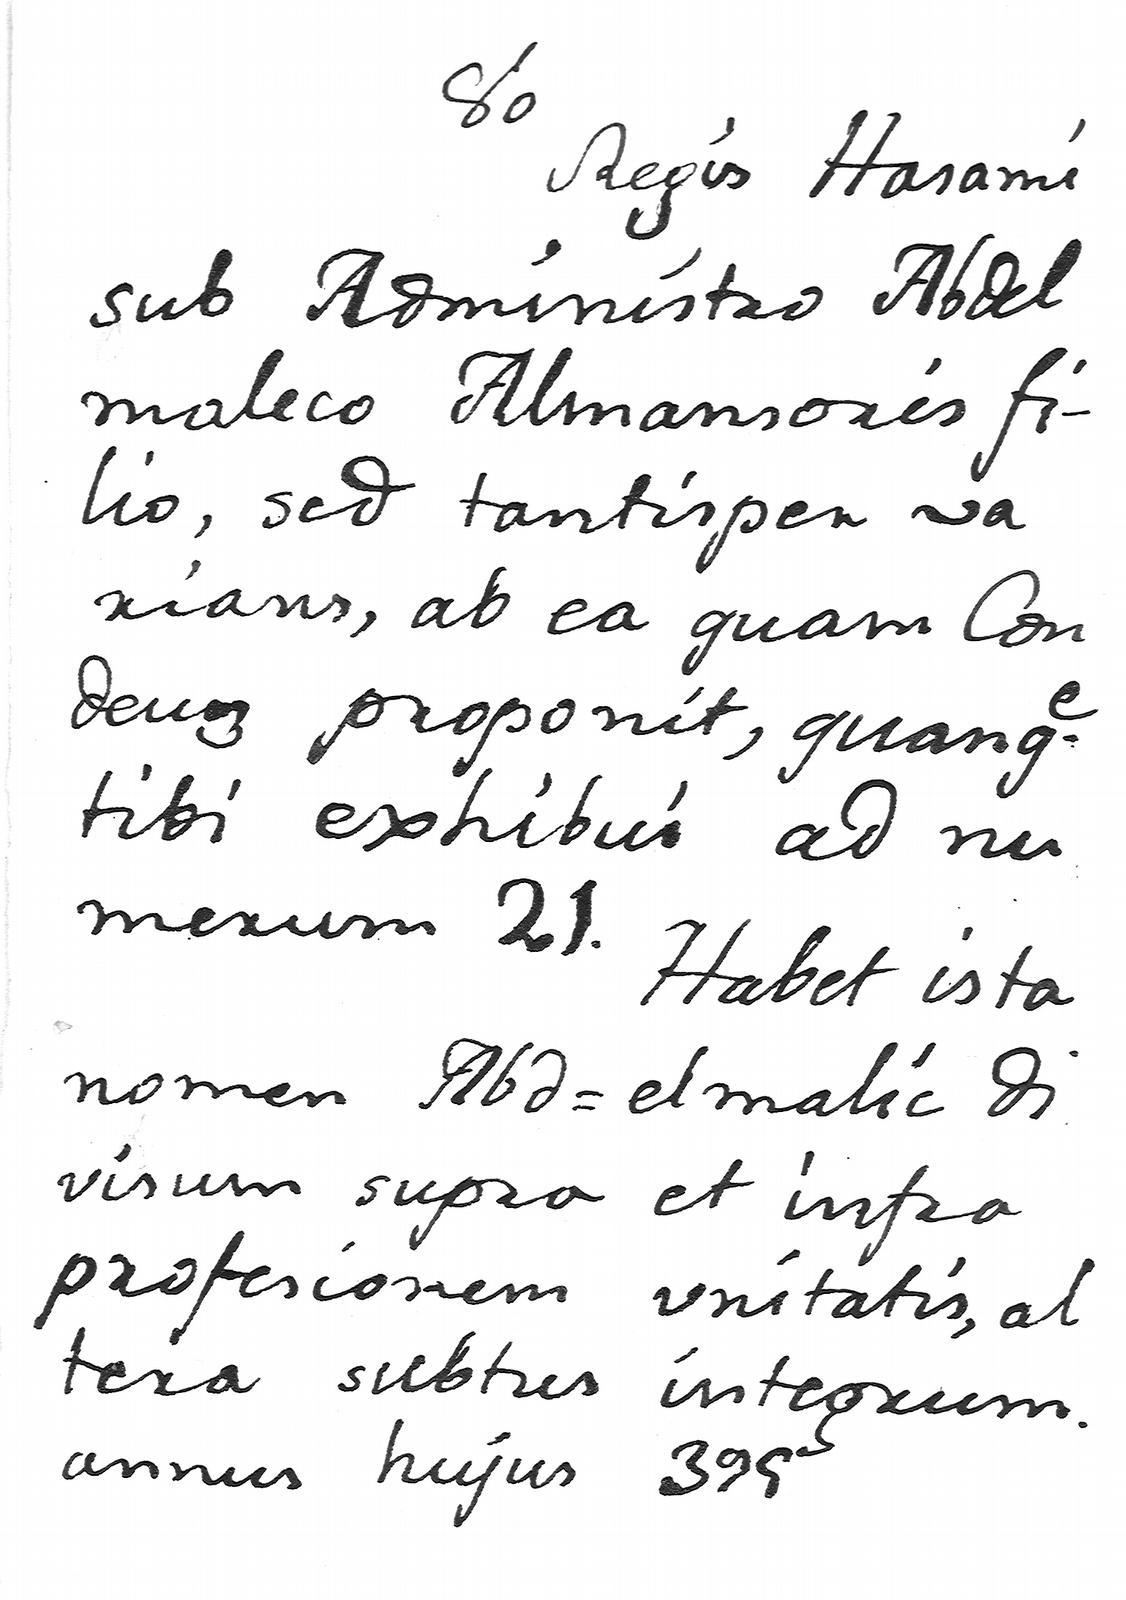 80
Regis Hasami
sub Administro Abdel
maleco Almansoris fi-
lio, sed tantisper va
rians, ab ea quam Con
deus proponit, quamq.e
tibi exhibui ad nu
merum 21.
Habet ista
nomen Abd=elmalic di
visum supra et infra
profesionem unitatis, al
tera subtus integrum.
annus hujus 395